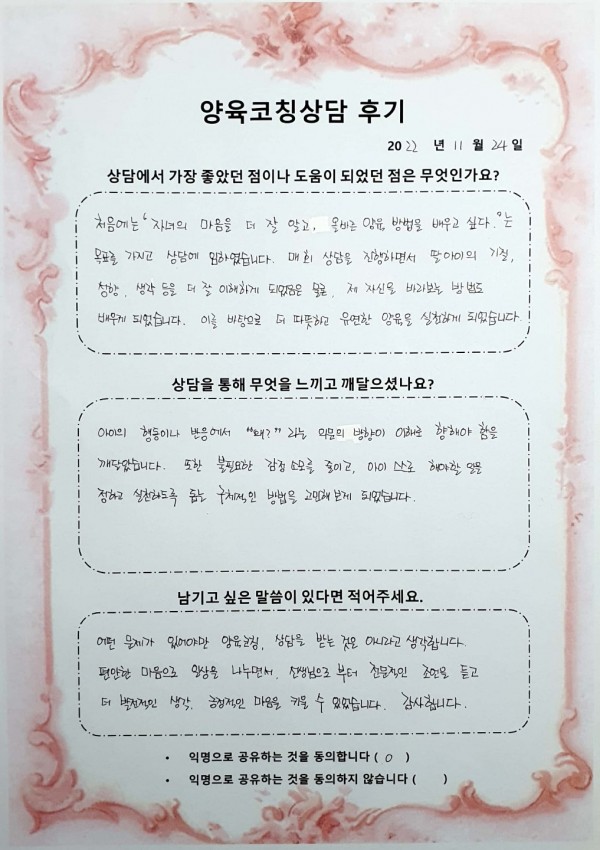 양육코칭상담 후기
2022 년 11 월 24 일
상담에서 가장 좋았던 점이나 도움이 되었던 점은 무엇인가요?
처음에는 "자녀의 마음을 더 잘 알고, 올바른 양육 방법을 배우고 싶다."는
목표를 가지고 상담에 임하였습니다. 매회 상담을 진행하면서 딸아이의 기질,
성향, 생각 등을 더 잘 이해하게 되었음은 물론, 제 자신을 바라보는 방법도
배우게 되었습니다. 이를 바탕으로 더 따뜻하고 유연한 양육을 실천하게 되었습니다.
상담을 통해 무엇을 느끼고 깨달으셨나요?
아이의 행동이나 반응에서 "왜?" 라는 의문의 방향이 이해로 향해야 함을
깨달았습니다. 또한 불필요한 감정 소모를 줄이고, 아이 스스로 해야할 일을
정하고 실천하도록 돕는 구체적인 방법을 고민해보게 되었습니다.
남기고 싶은 말씀이 있다면 적어주세요.
어떤 문제가 있어야만 양육코칭, 상담을 받는 것은 아니라고 생각합니다.
편안한 마음으로 일상을 나누면서, 선생님으로 부터 전문적인 조언을 듣고
더 발전적인 생각, 긍정적인 마음을 키울 수 있었습니다. 감사합니다.
• 익명으로 공유하는 것을 동의합니다 ( O )
• 익명으로 공유하는 것을 동의하지 않습니다 ( )